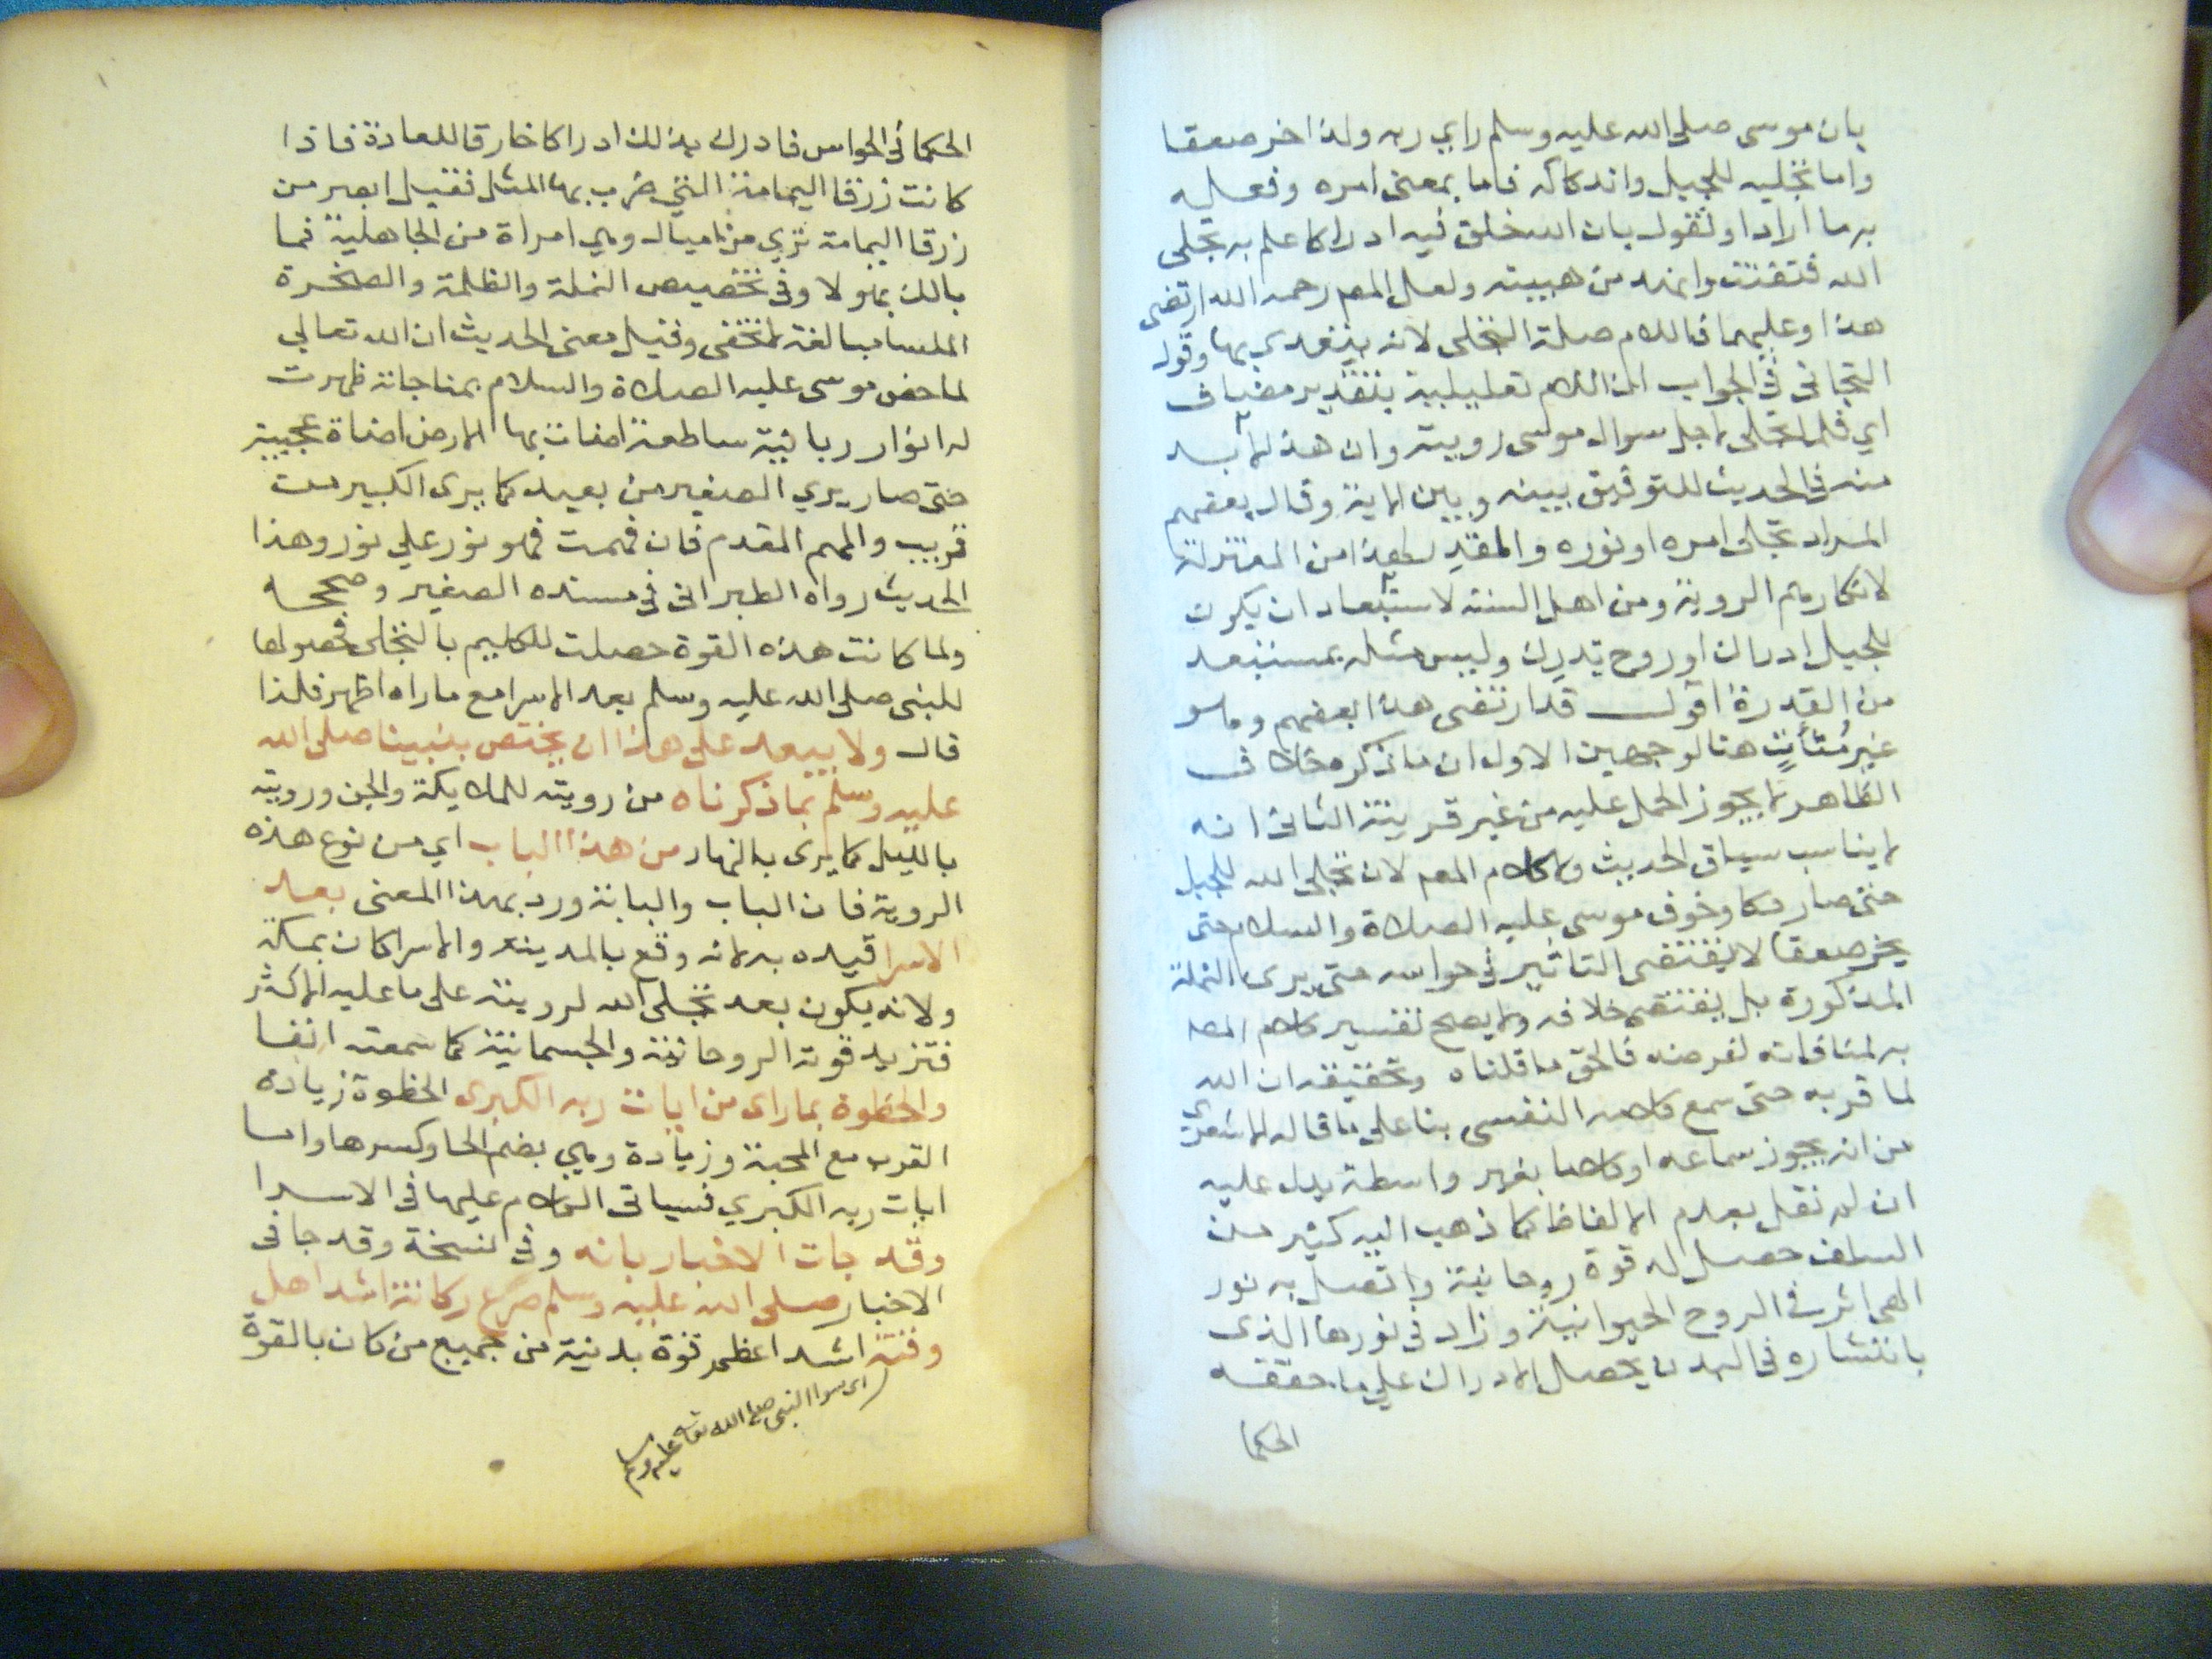 بان موسى صلى الله عليه وسلم راي ربه ولذا خر صعقا
واما تجليه للجبل واندكاكه فاما بمعنى امره وفعله
به ما اراد او نقول بان الله خلق فيه ادراكا علم به تجلى
الله فتفتت وانهد من هيبته ولعل المص رحمه الله ارتضى
هذا وعليهما فاللام صلة التجلى لانه يتعدى بها وقول
التجانى فى الجواب ان اللام تعليلية بتقدير مضاف
اي فلما تجلى لاجل سوال موسى رويته وان هذا لابد
منه فى الحديث للتوفيق بينه وبين الاية وقال بعضهم
المراد تجلى امره او نوره والمقتد لهذا من المعتزلة
لانكارهم الروية ومن اهل السنة لاستبعاد ان يكون
للجبل ادراك او روح تدرك وليس مثله بمستبعد
من القدرة اقول قد ارتضى هذا بعضهم وهو
غير متأت هنا لوجهين الاول ان ما ذكره خلاف
الظاهر لا يجوز الحمل عليه من غير قرينة الثانى انه
لا يناسب سياق الحديث ولا كلام المص لان تجلى الله للجبل
حتى صار دكا وخوف موسى عليه الصلاة والسلام حتى
يخر صعقا لا يقتضى التاثير فى حواسه حتى يرى النملة
المذكورة بل يقتضى خلافه ولا يصح تفسير كلام المص
به لمنافاته لغرضه فالحق ما قلناه وتحقيقه ان الله
لما قربه حتى سمع كلامه النفسى بنا على ما قاله الاشعري
من انه يجوز سماعه او كلاما بغير واسطة يدل عليه
ان لم نقل بعدم الالفاظ كما ذهب اليه كثير من
السلف حصل له قوة روحانية واتصل به نور
الهى اثر فى الروح الحيوانية وزاد فى نورها الذى
بانتشاره فى البدن يحصل الادراك على ما حققه
الحكما
الحكما فى الحواس فادرك بذلك ادراكا خارقا للعادة فاذا
كانت زرقا اليمامة التى يضرب بها المثل فقيل ابصر من
زرقا اليمامة تري من اميال وهي امراة من الجاهلية فما
بالك بهولا وفى تخصيص النملة والظلمة والصخرة
الملسا مبالغة لا تخفى وقيل معنى الحديث ان الله تعالي
لما خص موسى عليه الصلاة والسلام بمناجاته ظهرت
له انوار ربانية ساطعة اضات بها الارض اضاة عجيبة
حتى صار يري الصغير من بعيد كما يرى الكبير من
قريب والمهم المقدم فان فهمت فهو نور علي نور وهذا
الحديث رواه الطبرانى فى مسنده الصغير وصححه
ولما كانت هذه القوة حصلت للكليم بالتجلى فحصولها
للنبى صلى الله عليه وسلم بعد الاسرا مع ما راه اظهر فلذا
قال ولا يبعد على هذا ان يختص بنبينا صلى الله
عليه وسلم بما ذكرناه من رويته للملايكة والجن ورويته
بالليل كما يرى بالنهار من هذا الباب اي من نوع هذه
الروية فان الباب والبابة ورد بهذا المعنى بعد
الاسرا قيده به لانه وقع بالمدينة والاسرا كان بمكة
ولانه يكون بعد تجلى الله لرويته على ما عليه الاكثر
فتزيد قوته الروحانية والجسمانية كما سمعته انفا
والحظوة بما راى من ايات ربه الكبرى الحظوة زيادة
القرب مع المحبة وزيادة وهي بضم الحا وكسرها واما
ايات ربه الكبري فسياتى الكلام عليها فى الاسرا
وقد جات الاخبار بانه وفى نسخة وقد جا فى
الاخبار صلى الله عليه وسلم صرع ركانة اشد اهل
وقته اشد اعظم قوة بدنية من جميع من كان بالقوة
اى سوا النبى صلى الله تعا عليه وسلم